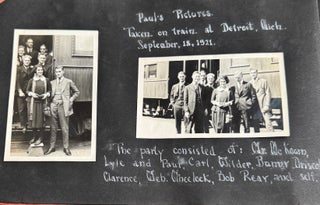 Paul's Pictures.
Taken on train at Detroit, Mich.
September, 18, 1921.
The party consisted of: Mr.
Lyle and Paul Carl, Wilder, Bunny Driscol
Clarence, Web. Wheelock, Bob Rear, and self.